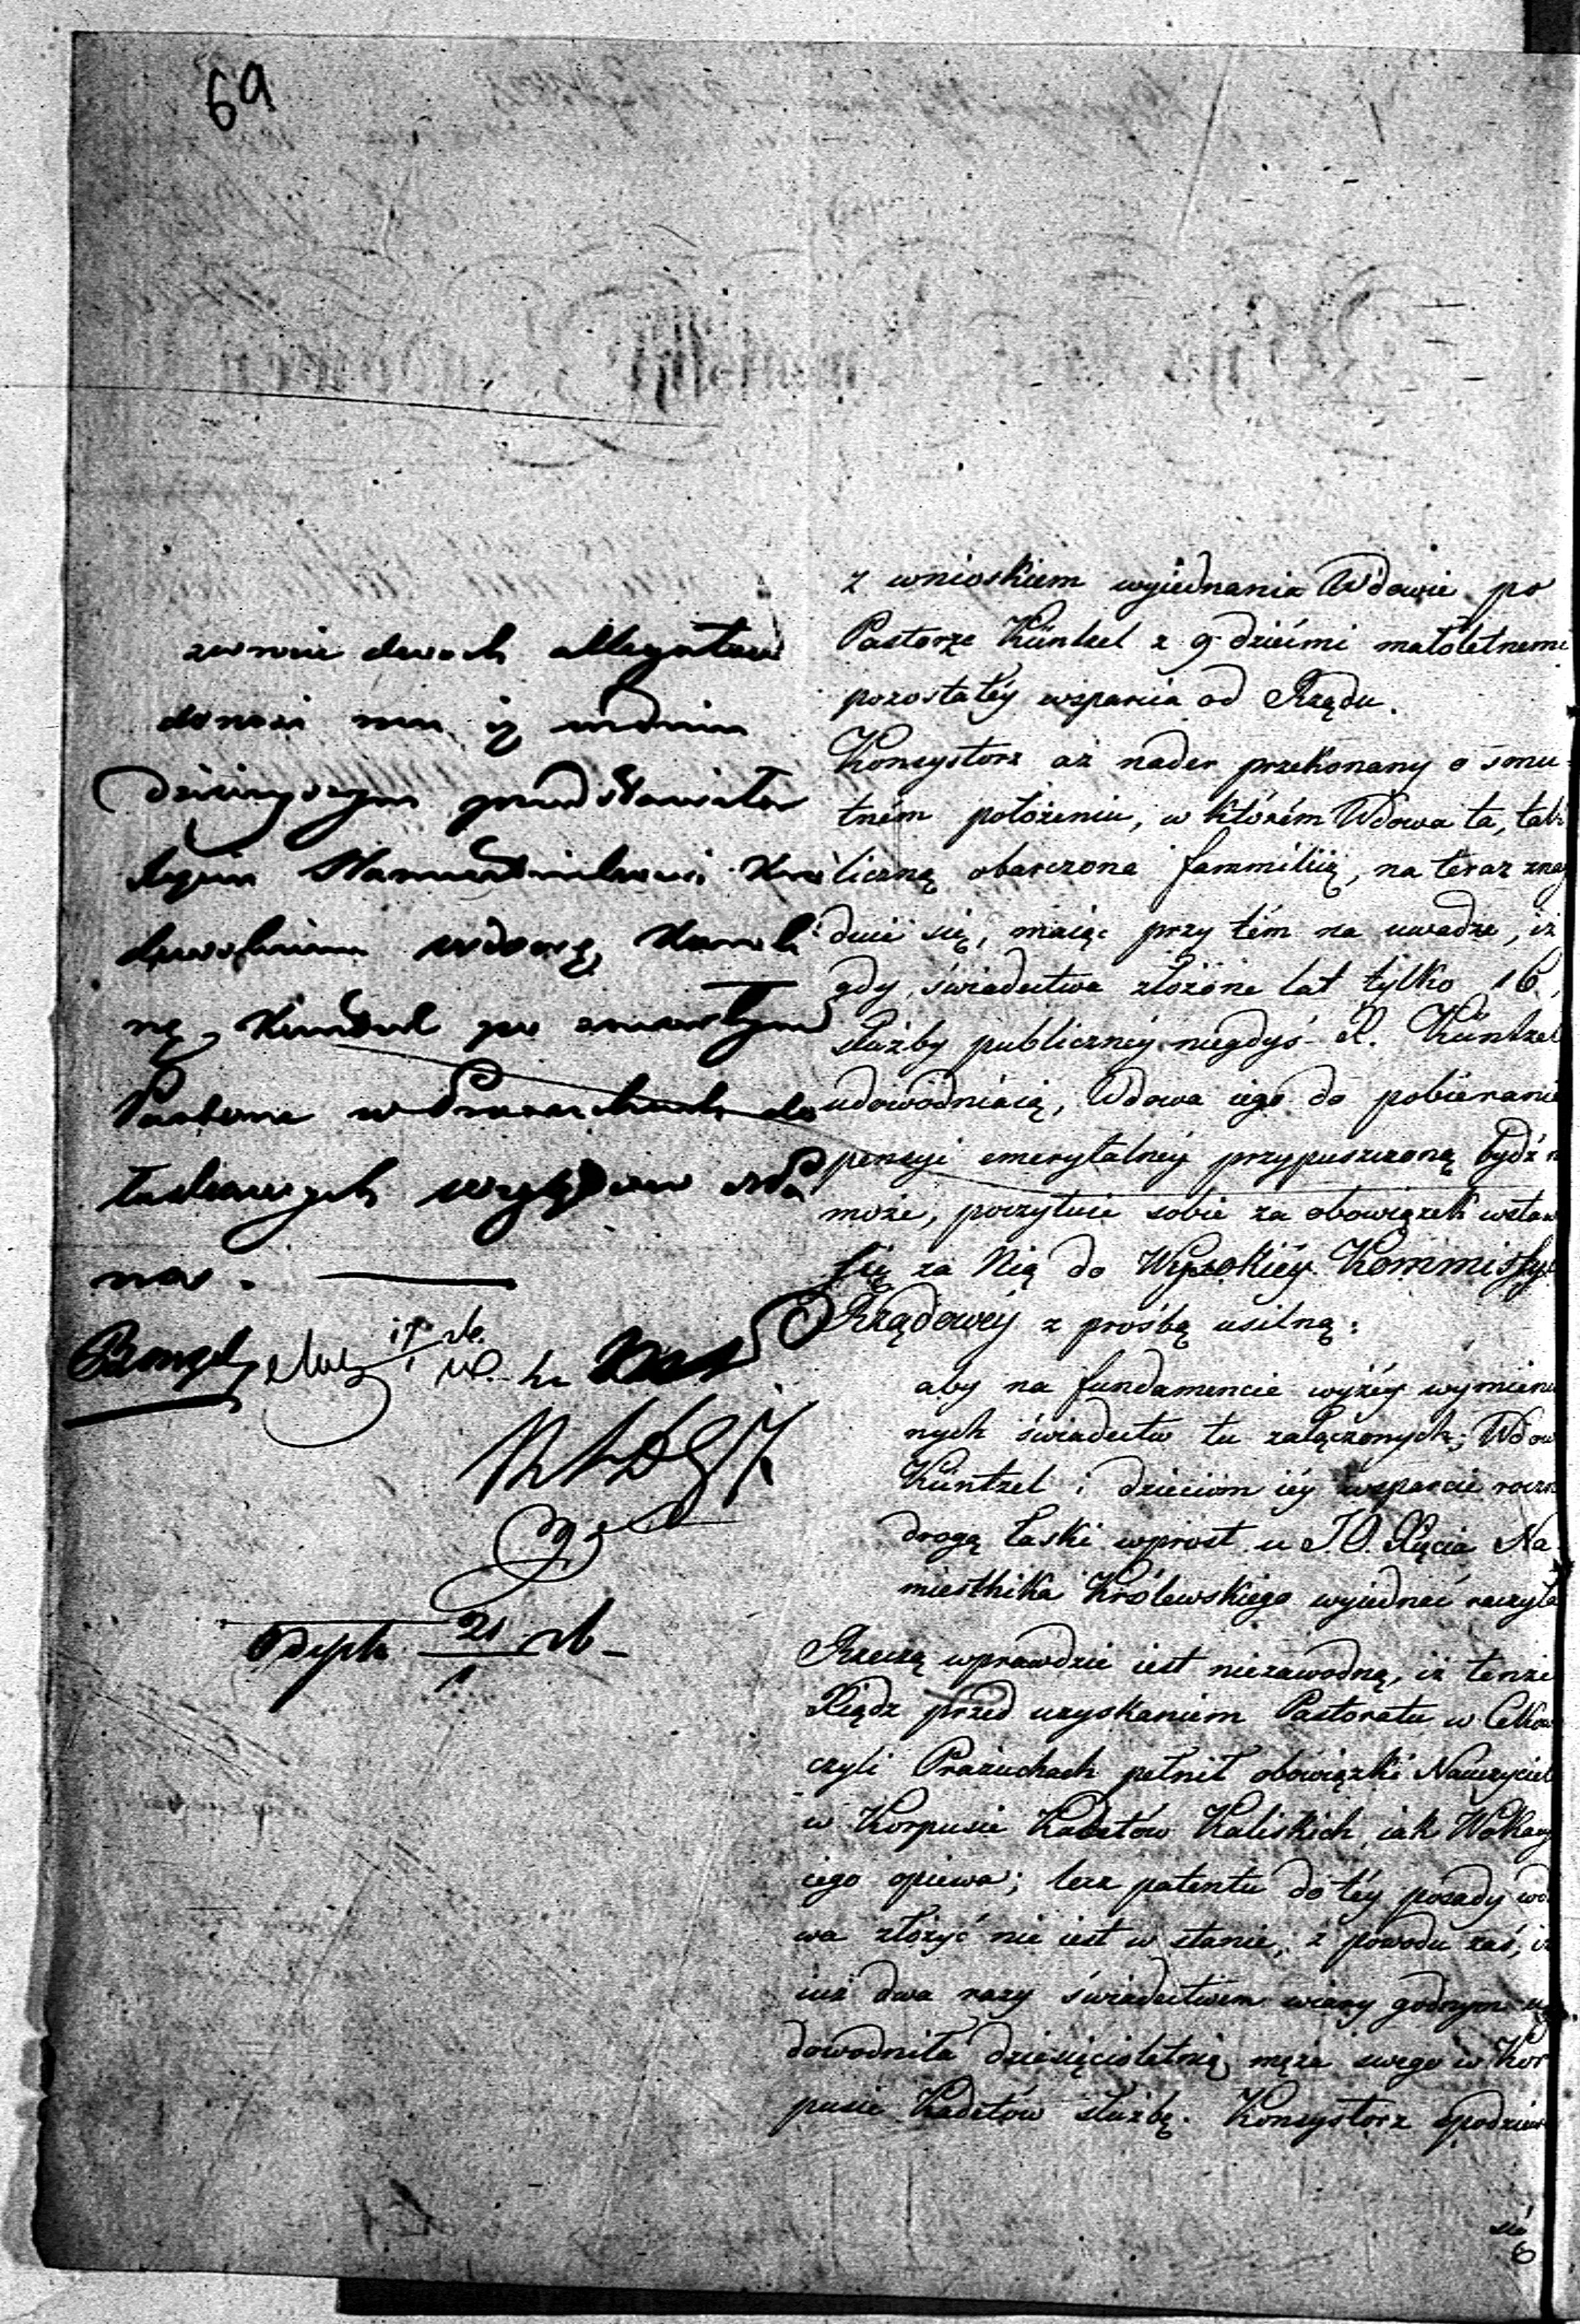 69
zwrocie dwoch allegatow
donosi mu iż w dniu
dzisieyszym przedstawiła
Xięciu Namiestnikowi Kró
lewskiemu wdowę Karoli
nę Küntzel po zmarłym
Pastorze w Prazuchach do
łaskawych względow Xda
na.
z wnioskiem wyiednania Wdowie po
Pastorze Küntzel z 9 dziećmi małoletnemi
pozostałéy wsparcia od Rządu.
Konsystorz aż nader przekonany o smu-
tném położeniu, w którém Wdowa ta, tak
liczną obarczona fammiliią, na teraz znay
duie się, maiąc przy tém na uwadze, iż
gdy świadectwa złożone lat tylko 16,
służby publicznéy niegdyś X. Küntzel
udowodniaią, Wdowa iego do pobierania
pensyi emerytalnéy przypuszczoną bydź n
może, poczytuie sobie za obowiązek wstaw
się za Nią do Wysokiéy Kommissyi
Rządowéy z prośbą usilną:
aby na fundamencie wyżéy wymieni
nych świadectw tu załączonych, Wdow
Küntzel i dzieciom iéy wsparcie roczn
drogą łaski wprost u J. O. Xięcia Na-
miestnika Królewskiego wyiednać raczyła
Rzeczą wprawdzie iest niezawodną, iż tenże
Xiądz przed uzyskaniem Pastoratu w Cekow
czyli Prażuchach pełnił obowiązki Nauczyciela
w Korpusie Kadetów Kaliskich, iak Wokacya
iego opiewa; lecz patentu do téy posady wdo
wa złożyć nie iest w stanie; z powodu zaś, iż
iuż dwa razy świadectwem wiary godnym u
dowodniła dziesięcioletnią męża swego w Kor
pusie Kadetów służbę. Konsystorz spodziewa
się
6